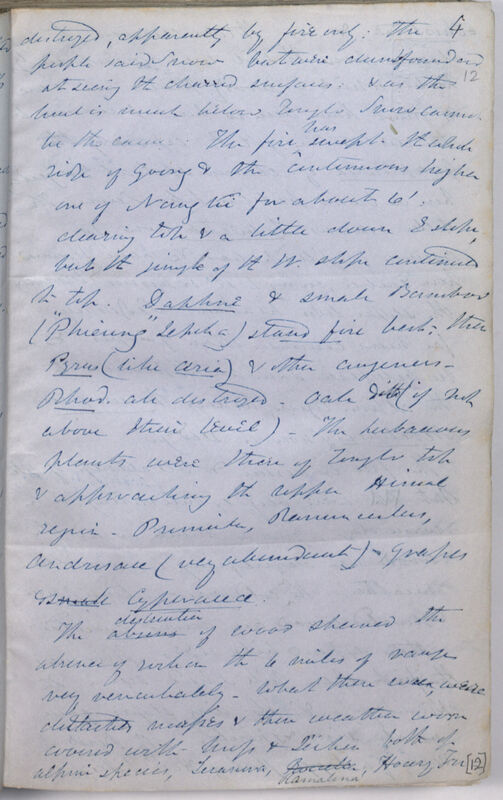 destroyed, apparently by fire only: the 4
people said snow but were dumbfounded 12
at seeing the charred surfaces: & as the
level is much below Tonglo Snow cannot
be the cause: The fire has swept the whole
ridge of Goong & the continuous higher
one of Nanghi for about 6'.
clearing top & a little down E slope,
but the jungle of the W. slope continued
to top. Daphne & small Bamboo
("Phieung" Lepcha) stand fire best; then
Pyrus (like aria) & other congeners -
Rhod. all destroyed. Oak ditto (if not
above their level) - The herbaceous
plants were these of Tonglo top
& approaching the upper Himal
region - Primula, Ranunculus,
Androsace (very abundant) - Grapes
& small Cyperaceae.
The absence destruction of wood shewed the
absence of rock on the 6 miles of range
very remarkably - what there was, were
detached masses & then weather worn
covered with & Lichen both of
alpine species, Ramalina, Hoary [12]